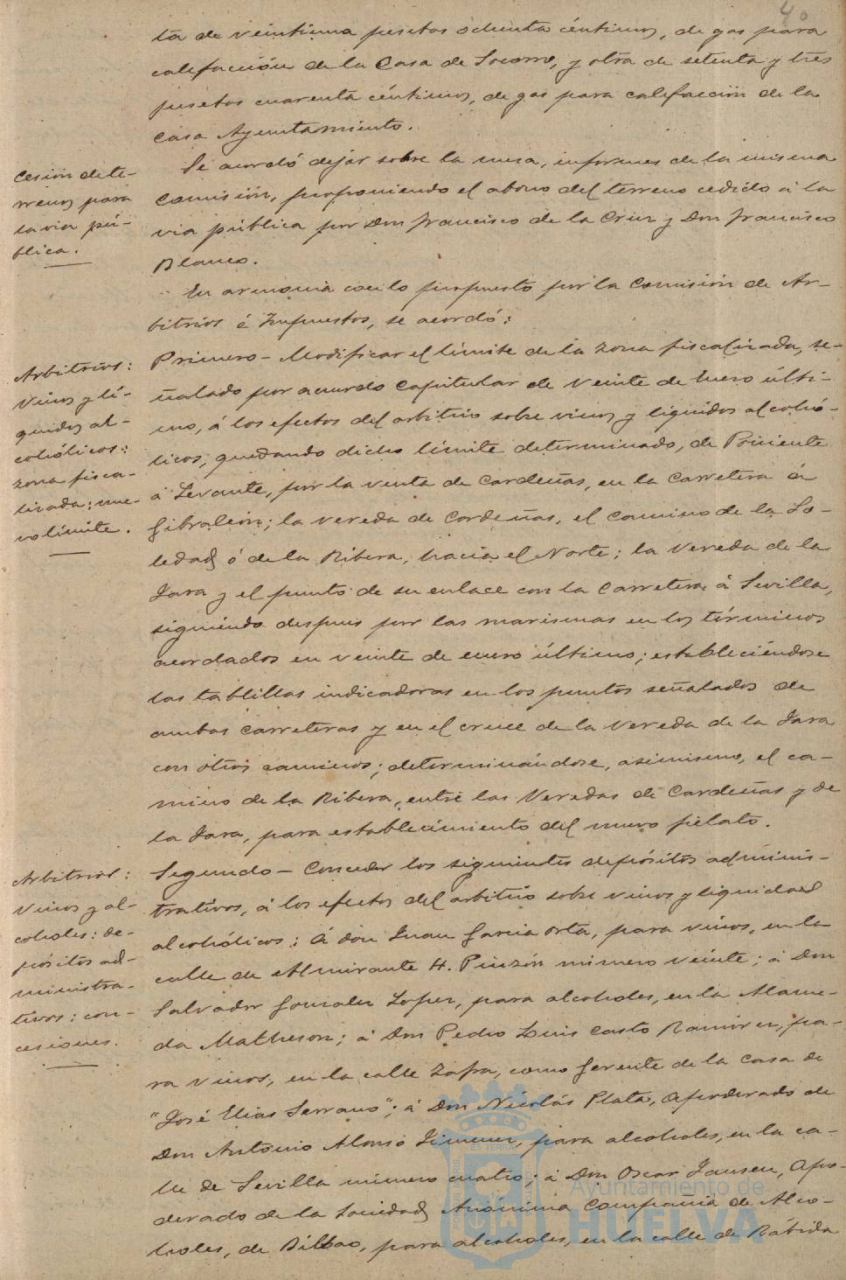 40
ta de veintiuna pesetas ochenta céntimos, de gas para
calefacción de la Casa de Socorro, y otra de setenta y tres
pesetas cuarenta céntimos, de gas para calefacción de la
Casa Ayuntamiento.
Cesión de te-
rrenos para
la via pú-
blica.
Se acordó dejar sobre la mesa, informes de la misma
Comisión, proponiendo el abono del terreno cedido á la
via pública por Don Francisco de la Cruz y Don Francisco
Blanco.
En armonia con lo propuesto por la Comisión de Ar-
bitrios é Impuestos, se acordó:
Arbitrios:
Vinos y lí-
quidos al-
cohólicos:
zona fisca-
lizada: nue-
vo límite.
Primero - Modificar el límite de la zona fiscalizada, se-
ñalado por acuerdo capitular de veinte de Enero últi-
mo, á los efectos del arbitrio sobre vinos y liquidos alcohó-
licos, quedando dicho límite determinado, de Poniente
á Levante, por la venta de Cardeñas, en la Carretera á
Gibraleón; la vereda de Cardeñas, el camino de la So-
ledad ó de la Ribera, hacia el Norte; la Vereda de la
Jara y el punto de su enlace con la Carretera á Sevilla,
siguiendo despues por las marismas en los términos
acordados en veinte de enero último; estableciéndose
las tablillas indicadoras en los puntos señalados de
ambas carreteras y en el cruce de la Vereda de la Jara
con otros caminos; determinándose, asimismo, el ca-
mino de la Ribera, entre las Veredas de Cardeñas y de
la Jara, para establecimiento del nuevo fielato.
Arbitrios:
Vinos y al-
coholes: de-
pósitos ad-
ministra-
tivos: con-
cesiones.
Segundo - Conceder los siguientes depósitos adminis-
trativos, á los efectos del arbitrio sobre vinos y liquidos
alcohólicos: Á don Juan Garcia Orta, para vinos, en la
calle de Almirante H. Pinzón número veinte; á Don
Salvador Gonzalez Lopez, para alcoholes, en la Alame-
da Matheson; á Don Pedro Luis Casto Ramirez, pa-
ra vinos, en la calle Zafra, como Gerente de la casa de
"José Elias Serrano"; á Don Nicolás Plata, Apoderado de
Don Antonio Alonso Jimenez, para alcoholes, en la ca-
lle de Sevilla número cuatro; á Don Oscar Jansen, Apo-
derado de la Sociedad Anónima Compañia de Alco-
holes, de Bilbao, para alcoholes, en la calle de Rábida
Ayuntamiento de
HUELVA